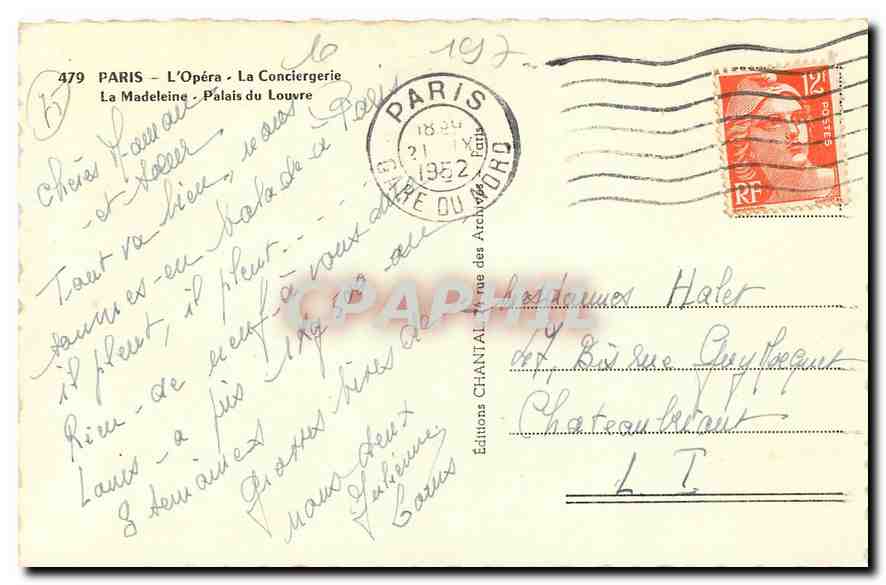 479 PARIS - L'Opéra - La Conciergerie
La Madeleine - Palais du Louvre
197
Chères Maman
et soeur
Tout va bien, nous
sommes en balade à Paris
il pleut, il pleut.......
Rien de neuf à vous dire
Louis a pris 1kg 500 en
3 semaines
Grosses bises de
nous deux
Julienne
Louis
PARIS
18H
21 IX
1952
GARE DU NORD
12F
POSTES
RF
Éditions CHANTAL, 74 rue des Archives - Paris
CPAPHIL
Mesdames Halet
27, Bis rue Guy Mocquet
Chateaubriant
L I